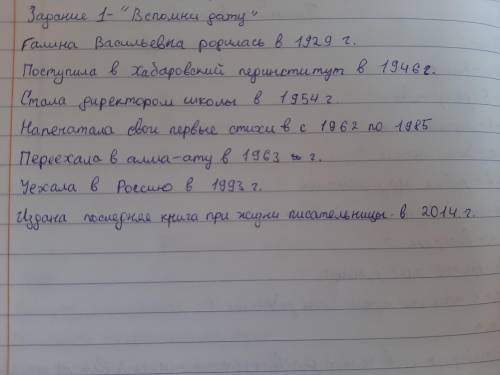 Задание 1- "Вспомни дату"
Галина Васильевна родилась в 1929 г.
Поступила в Хабаровский пединститут в 1946 г.
Стала директором школы в 1954 г.
Напечатала свои первые стихи в с 1962 по 1985
Переехала в алма-ату в 1963 г.
Уехала в Россию в 1993 г.
Издана последняя книга при жизни писательницы в 2014 г.